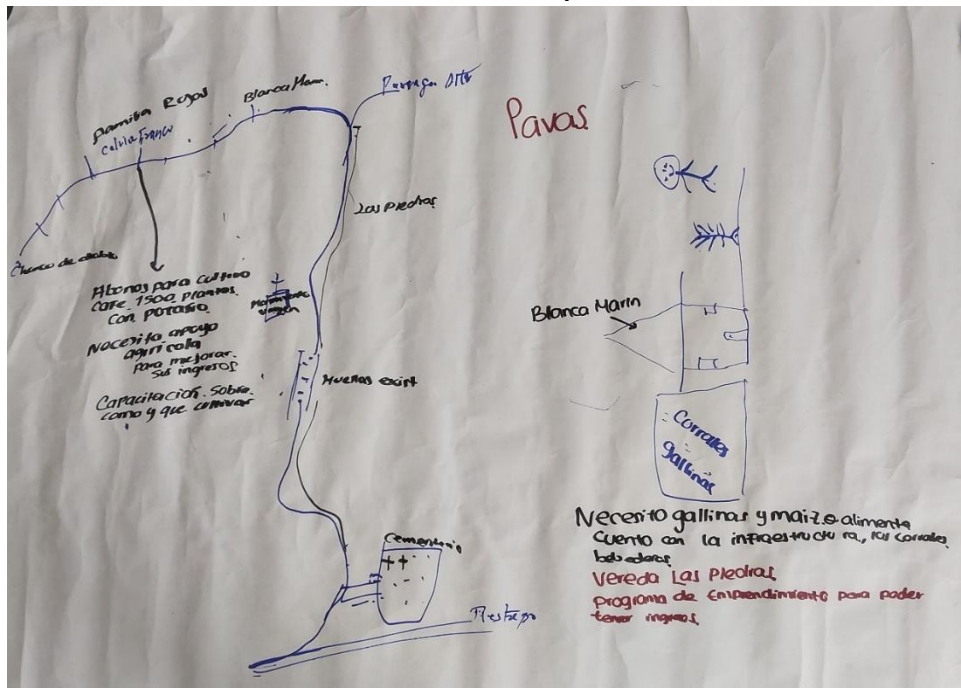 Pavas
Blanca Marin
Familia Rojas
Las Piedras
Charco de diablo
Abonos para cultivo
Cafe. 1500 plantas
con potasio
Necesita apoyo
agricola
para mejorar
sus ingresos
Capacitacion sobre
como y que cultivar
Huellas exist
Cementerio
Restrepo
Blanca Marin
Corrales
gallinas
Necesito gallinas y maiz o alimento
cuento con la infraestructura, los corrales
bebederos
Vereda Las Piedras
programa de Emprendimiento para poder
tener ingresos